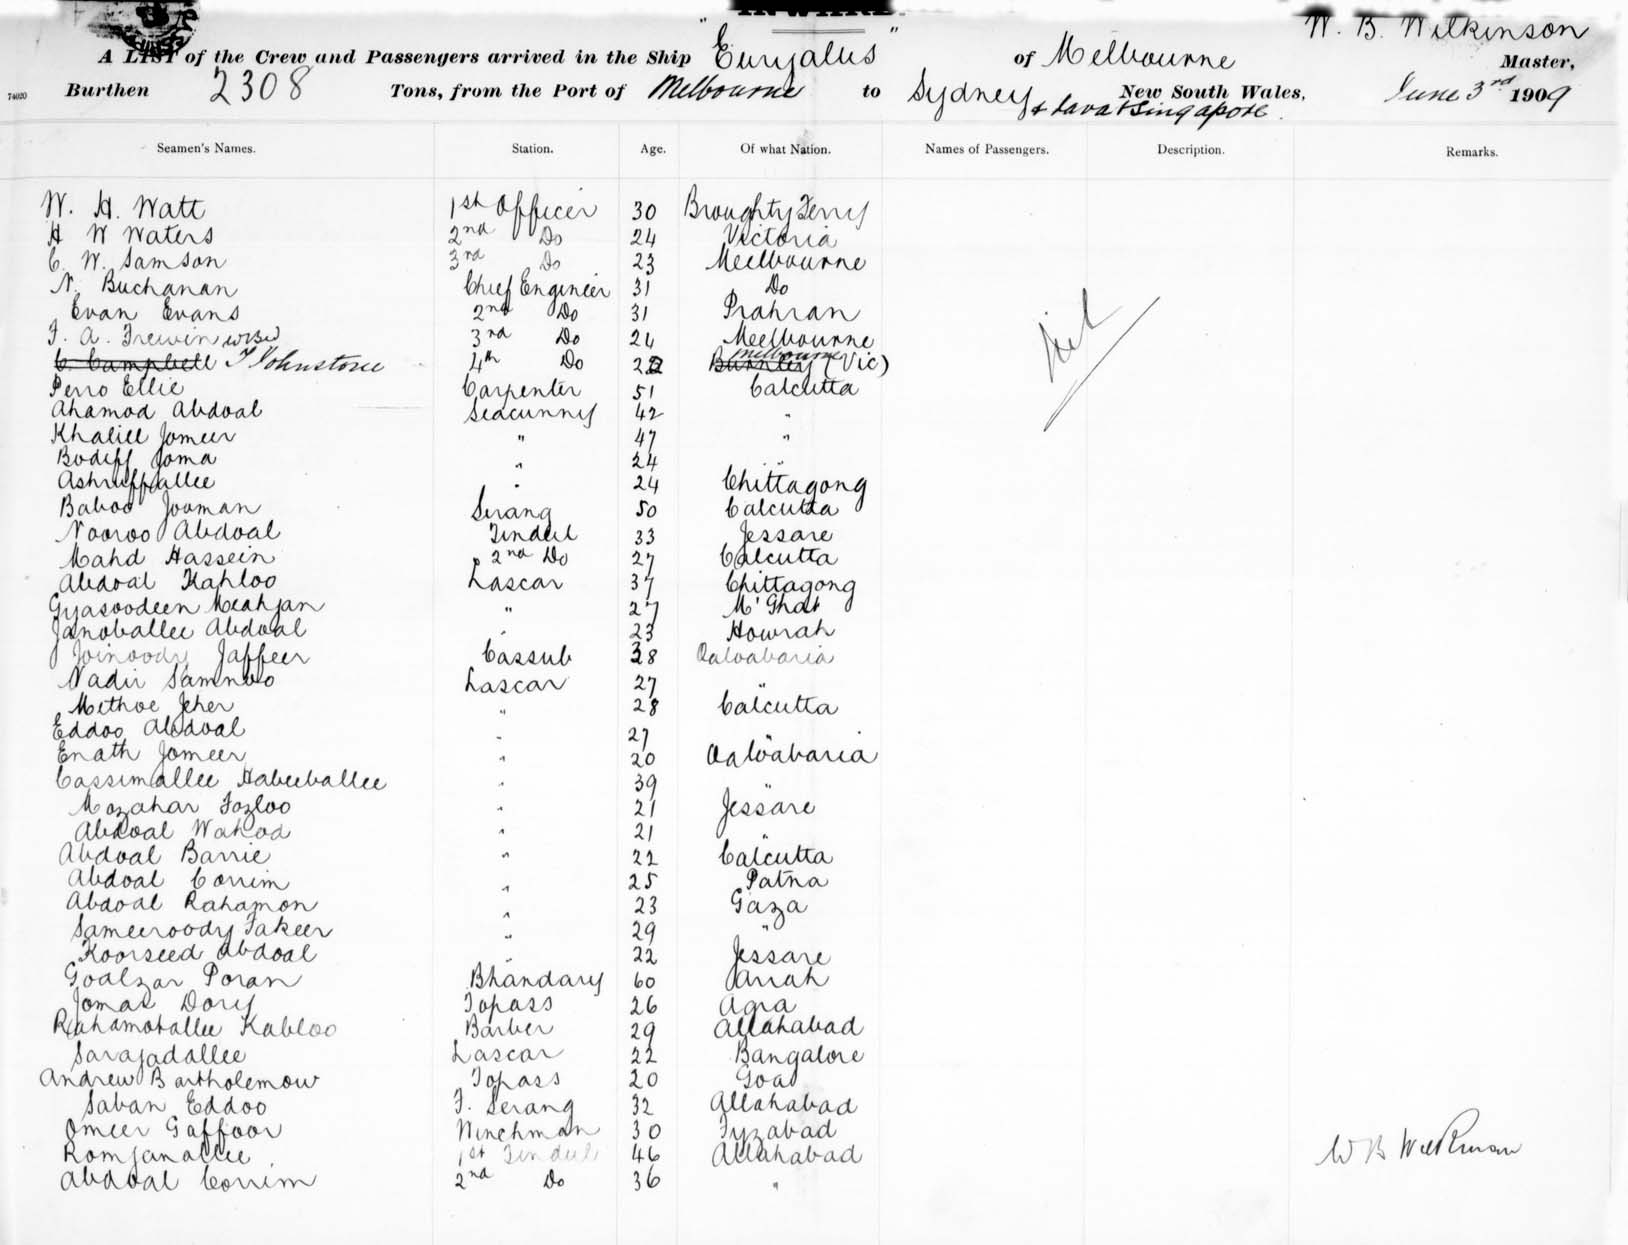 INWARD.
W. B. Wilkinson
A LIST of the Crew and Passengers arrived in the Ship "Euryalus" of Melbourne Master,
74020 Burthen 2308 Tons, from the Port of Melbourne to Sydney New South Wales, June 3rd 1909
& Java & Singapore.
Seamen's Names. Station. Age. Of what Nation. Names of Passengers. Description. Remarks.
W. H. Watt 1st Officer 30 Broughty Ferry
H W Waters 2nd Do 24 Victoria
C. W. Samson 3rd Do 23 Meelbourne
N. Buchanan Chief Engineer 31 Do
Evan Evans 2nd Do 31 Prahran
F. A. Trewin WBW 3rd Do 24 Meelbourne
C. Campbell T Johnstone 4th Do 22 Burnley Melbourne (Vic)
Nil
Perro Ellic Carpenter 51 Calcutta
Ahamod Abdoal Seacunny 42 "
Khalill Jomeer " 47 "
Bodiff Joma " 24 "
Ashruffallee " 24 Chittagong
Baboo Jooman Serang 50 Calcutta
Nooroo Abdoal Tindel 33 Jessare
Mahd Hassein 2nd Do 27 Calcutta
Abdoal Kahloo Lascar 37 Chittagong
Gyasoodeen Meahjan " 27 M' Ghat
Janoballee Abdoal " 23 Howrah
Joinoody Jaffeer Cassub 38 Oaloabaria
Nadir Samnoo Lascar 27 "
Methoe Jeher " 28 Calcutta
Eddoo Abdoal " 27 "
Enath Jomeer " 20 Oaloabaria
Cassimallee Habeeballee " 39 "
Mozahar Fozloo " 21 Jessare
Abdoal Wahod " 21 "
Abdoal Barrie " 22 Calcutta
Abdoal Corrim " 25 Patna
Abdoal Rahamon " 23 Gaza
Sameeroody Fakeer " 29 "
Koorseed Abdoal " 22 Jessare
Goalzar Poran Bhandary 60 Arrah
Jomar Dory Topass 26 Agra
Rahamotallee Kabloo Barber 29 Allahabad
Sarajadallee Lascar 22 Bangalore
Andrew Bartholemow Topass 20 Goa
Saban Eddoo F. Serang 32 Allahabad
Omeer Gaffoor Winchman 30 Fyzabad
Romjanallee 1st Tindel 46 Allahabad
W B Wilkinson
Abdoal Corrim 2nd Do 36 "